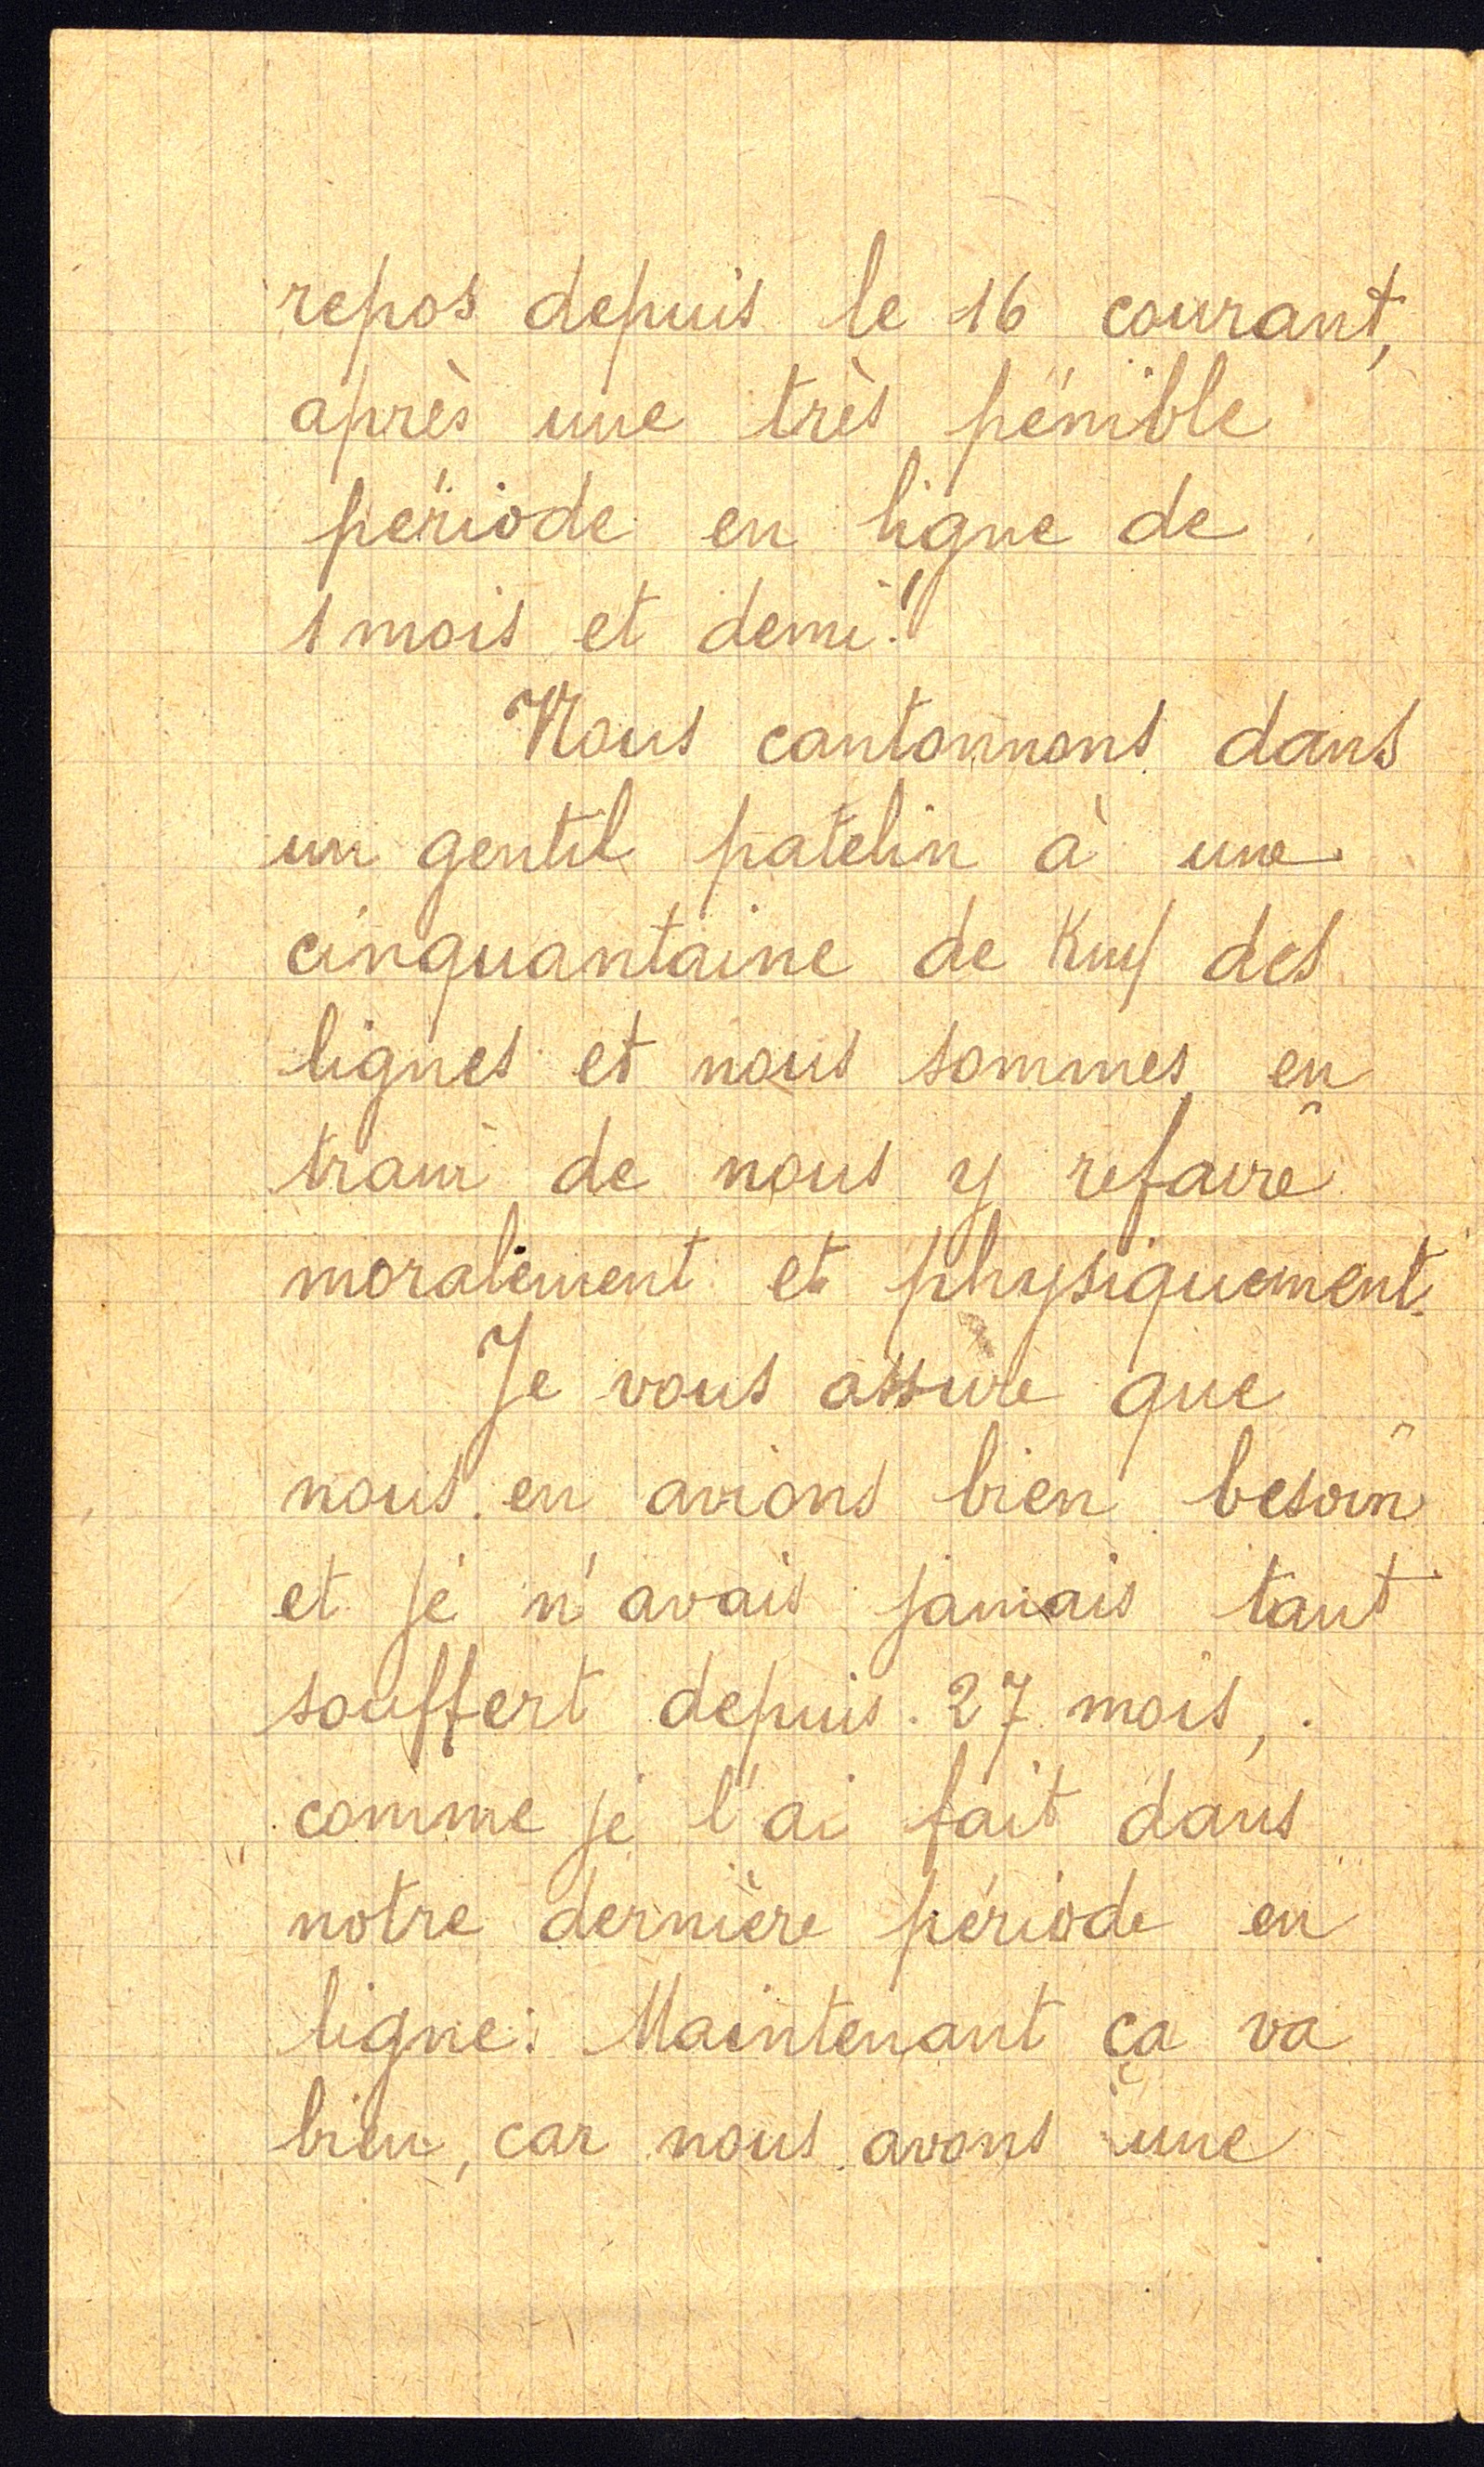 repos depuis le 16 courant,
après une très pénible
période en ligne de
1 mois et demi!
Nous cantonnons dans
un gentil patelin à une
cinquantaine de Km/ des
lignes et nous sommes en
train de nous y refaire
moralement et physiquement.
Je vous assure que
nous en avions bien besoin
et je n'avais jamais tant
souffert depuis 27 mois,
comme je l'ai fait dans
notre dernière période en
ligne. Maintenant ça va
bien, car nous avons une